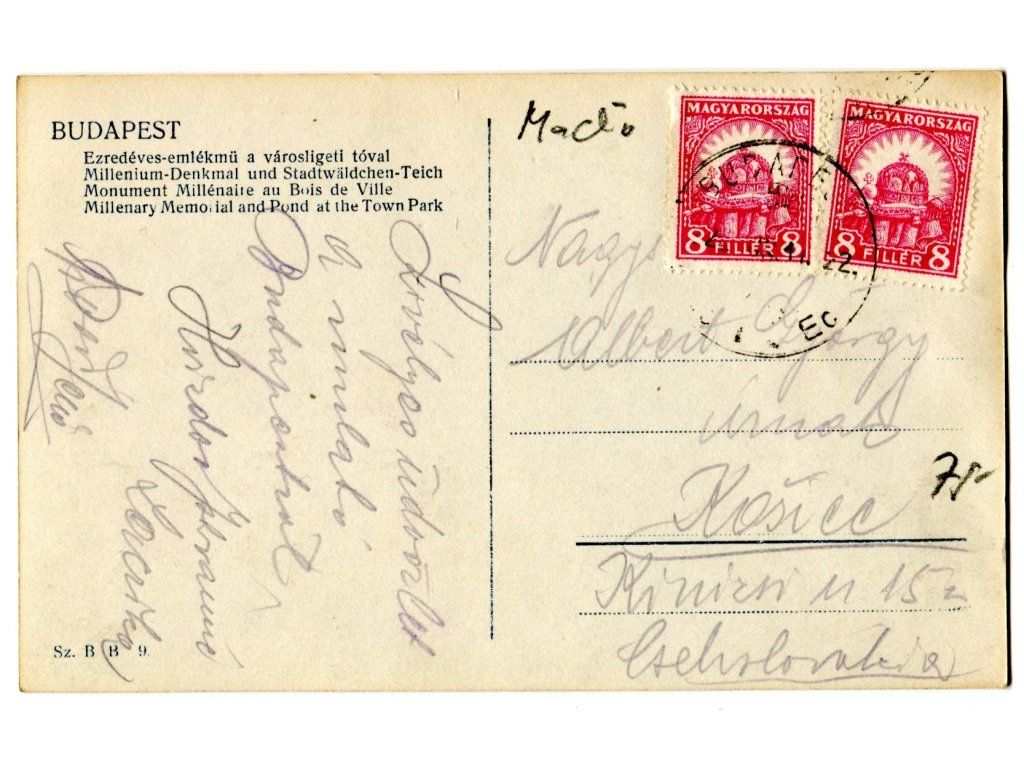 BUDAPEST
Ezredéves-emlékmü a városligeti tóval
Millenium-Denkmal und Stadtwäldchen-Teich
Monument Millénaire au Bois de Ville
Millenary Memorial and Pond at the Town Park
Szivélyes üdvözlet
a mulató
Budapestről
Lacika
Sz. B B 9.
MAGYARORSZÁG
8 FILLÉR 8
MAGYARORSZÁG
8 FILLÉR 8
22.
Nagys
Albert György
urnak
Košice
Kinizsi u 15
Csehslovákia